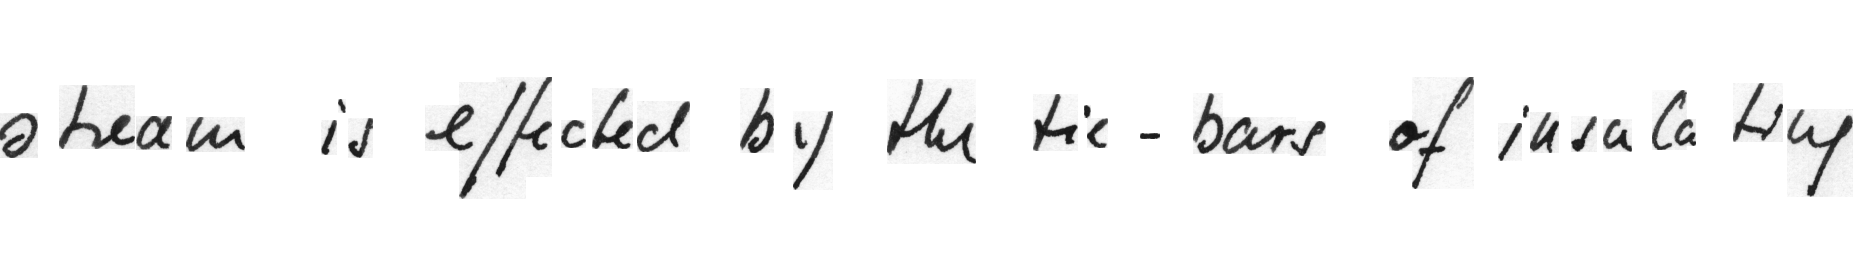 stream is effected by the tie-bars of insulating